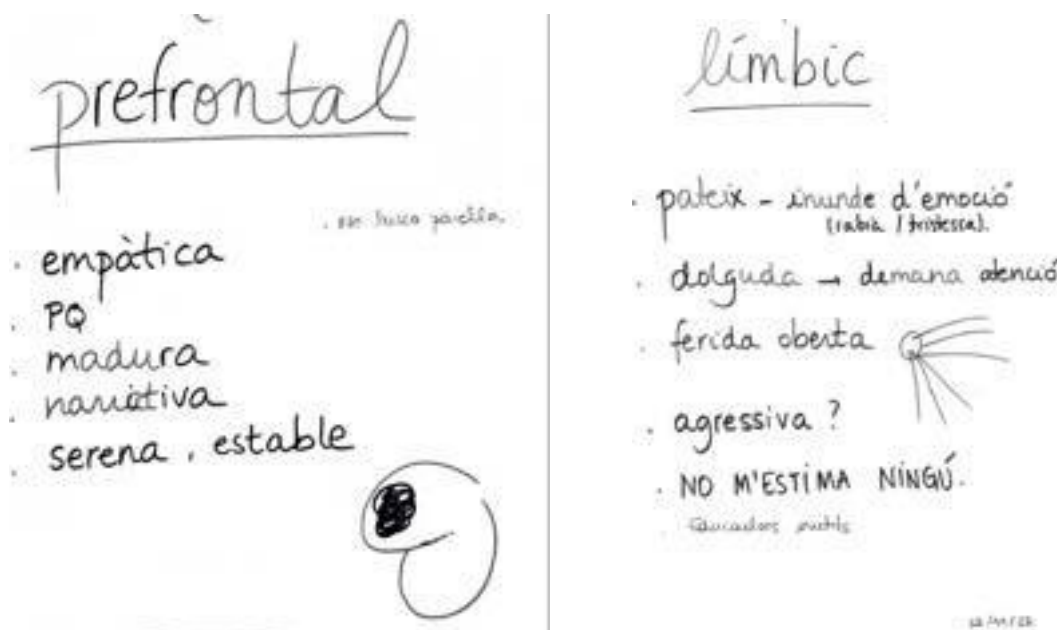 prefrontal
. empàtica
. PQ
. madura
. narrativa
. serena, estable
límbic
. pateix - inunde d'emoció
(rabia / tristesa).
. dolguda → demana atenció
. ferida oberta
. agressiva ?
. NO M'ESTIMA NINGÚ.